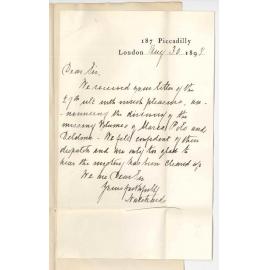 187 Piccadilly
London Aug 30 1898
Dear Sir,
We received your letter of the
27th ult with much pleasure, an-
nouncing the discovery of the
missing Volumes of Marco Polo and
We felt confident of their
dispatch and are only too glad to
hear the mystery has been cleared up
We are Dear Sir
Yours faithfully